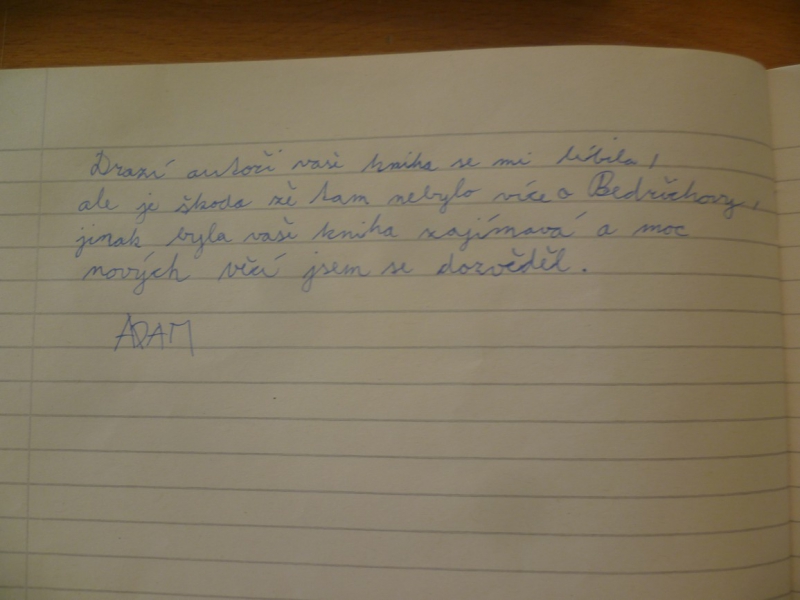 Drazí autoři vaše kniha se mi líbila,
ale je škoda že tam nebylo více o Bedřichovy,
jinak byla vaše kniha zajímavá a moc
nových věcí jsem se dozvěděl.
ADAM